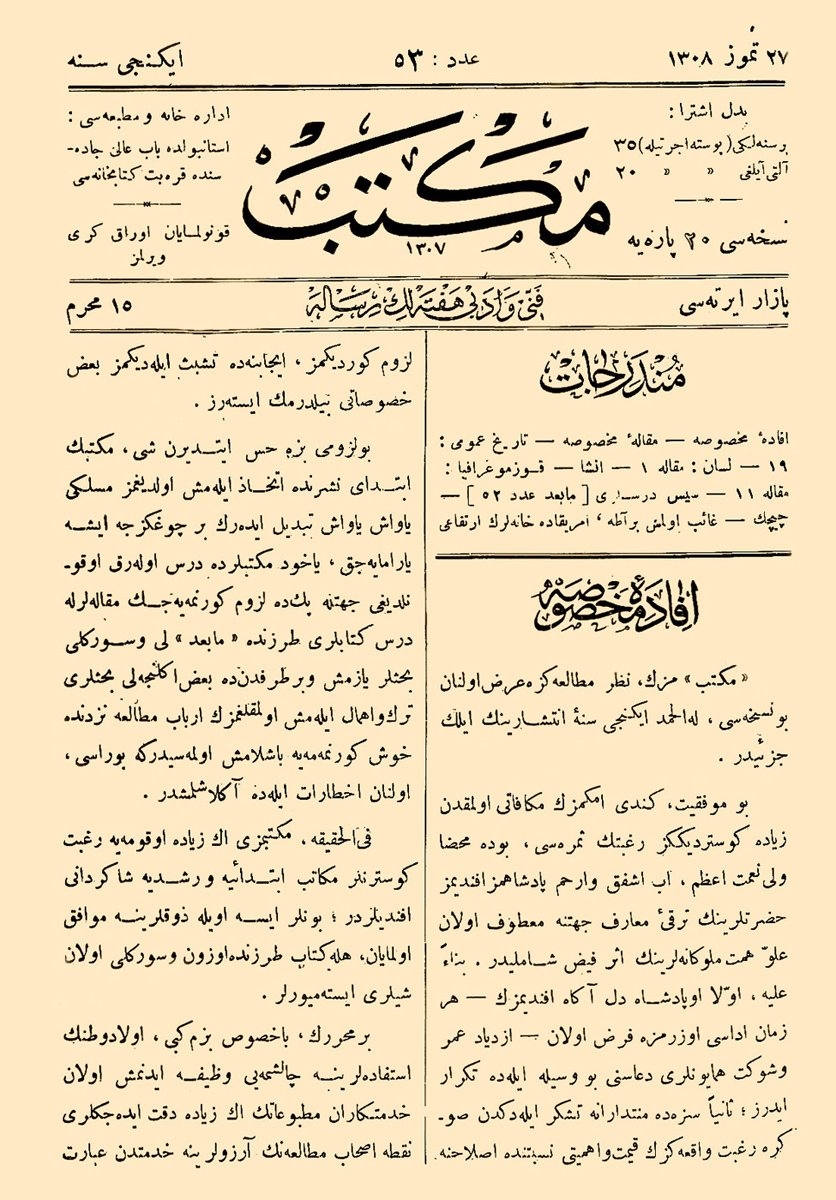 ٢٧ تموز ١٣٠٨
عدد : ٥٣
ایکنجی سنه
بدل اشترا :
برسنه‌لکی (پوسته اجرتیله) ٣٥
آلتی آیلغی » » ٢٠
نسخه‌سی ٢٠ پاره‌یه
مکتب
١٣٠٧
اداره خانه و مطبعه‌سی :
استانبولده باب عالی جاده-
سنده قره‌بت کتابخانه‌سی
قونولمایان اوراق کری
ویرلمز
پازار ایرته‌سی
فنی و ادبی هفته‌لك رساله
١٥ محرم
مندرجات
افادۀ مخصوصه — مقالۀ مخصوصه — تاریخ عمومی :
١٩ — لسان : مقاله ١ — انشا — قوزموغرافیا :
مقاله ١١ — سیس درسلری [ مابعد عدد ٥٢ ] —
چیچك — غائب اولمش برآطه ، آمریقاده خانه‌لرك ارتفاعی
افادۀ مخصوصه
« مکتب » مزك، نظر مطالعه‌کزه عرض اولنان
بو نسخه‌سی ، له‌الحمد ایکنجی سنۀ انتشارینك ایلك
جزئیدر .
بو موفقیت، کندی امکمزك مکافاتی اولمقدن
زیاده کوستردیککز رغبتك ثمره‌سی ، بوده محضا
ولی نعمت اعظم ، اب اشفق وارحم پادشاهمز افندیمز
حضرتلرینك ترقئ معارف جهتنه معطوف اولان
علوّ همت ملوکانه‌لرینك اثر فیض شاملیدر . بناءً
علیه ، اوّلا اوپادشاه دل آکاه افندیمزك — هر
زمان اداسی اوزرمزه فرض اولان — ازدیاد عمر
وشوکت همایونلری دعاسنی بو وسیله ایله‌ده تکرار
ایدرز ؛ ثانیاً سزه‌ده منتدارانه تشکر ایلدکدن صو-
کره رغبت واقعه‌کزك قیمت واهمیتی نسبتنده اصلاحنه
لزوم کوردیکمز ، ایجابنه‌ده تشبث ایله‌دیکمز بعض
خصوصاتی بیلدرمك ایسته‌رز .
بولزومی بزه حس ایتدیرن شی، مکتبك
ابتدای نشرنده اتخاذ ایله‌مش اولدیغمز مسلکی
یاواش یاواش تبدیل ایده‌رك بر چوغکزجه ایشه
یارامایه‌جق ، یاخود مکتبلرده درس اوله‌رق اوقو-
ندیغی جهتله پك‌ده لزوم کورنمه‌یه‌جك مقاله‌لرله
درس کتابلری طرزنده « مابعد » لی وسورکلی
بحثلر یازمش وبرطرفدن‌ده بعض اکلنجه‌لی بحثلری
ترك واهمال ایله‌مش اولمقلغمزك ارباب مطالعه نزدنده
خوش کورنمه‌مه‌یه باشلامش اولمه‌سیدرکه بوراسی ،
اولنان اخطارات ایله‌ده آکلاشلمشدر .
فی‌الحقیقه، مکتبمزی اك زیاده اوقومه‌یه رغبت
کوسترنلر مکاتب ابتدائیه و رشدیه شاکردانی
افندیلردر ؛ بونلر ایسه اویله ذوقلرینه موافق
اولمایان، هله کتاب طرزنده اوزون وسورکلی اولان
شیلری ایسته‌میورلر .
برمحررك، باخصوص بزم کبی، اولادوطنك
استفاده‌لرینه چالشمه‌یی وظیفه ایدنمش اولان
خدمتکاران مطبوعاتك اك زیاده دقت ایده‌جکلری
نقطه اصحاب مطالعه‌نك آرزولرینه خدمتدن عبارت